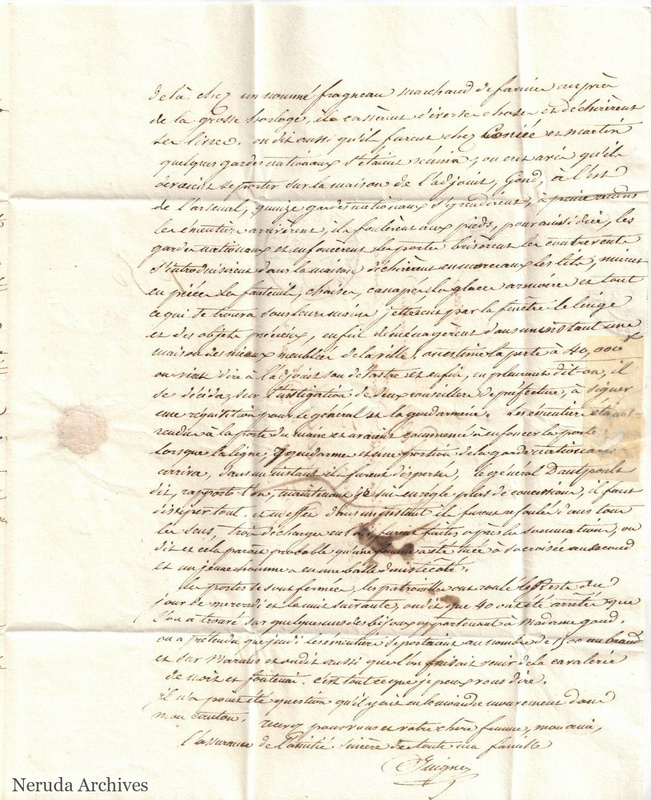 de là chez un nommé fragneau marchand de farine auprès
de la grosse horloge, ils cassèrent diverses choses et déchirèrent
ses livres. on dit aussi qu'ils furent chez et martin
quelques gardes nationaux s'étaient réunis, on eut avis qu'ils
devaient se porter sur la maison de l'adjoint, Gond, à l'est
de l'arsenal, quinze gardes nationaux s'y rendirent, à peine rendus
les émeutiers arrivèrent, ils foulèrent aux pieds, pour ainsi dire, les
gardes nationaux et enfoncèrent la porte brisèrent les contrevents
s'introduisirent dans la maison déchirèrent en morceaux les lits, mirent
en pièces les fauteuils, chaises, canapés, la glace armoire et tout
ce qui se trouva sous leurs mains jettèrent par la fenêtre le linge
et des objets précieux, enfin déménagèrent dans un instant une
maison des mieux meublées de la ville. on estime la perte à 40,000
on vint dire à l'adjoint son désastre et enfin, en pleurant dit-on, il
se décida, sur l'instigation de deux conseillers de préfecture, à signer
une réquisition pour le général et la gendarmerie. Les émeutiers étaient
rendus à la porte du maire et avaient commencé à enfoncer la porte
lorsque la ligne, gendarmes et une portion de la garde nationale
arriva, dans un instant et furent dispersés, le général Dautpoul
dit, rapporte-t-on, maintenant je suis en règle plus de concessions, il faut
dissiper tout. et en effet dans un instant ils furent refoulés dans tous
les sens, trois décharges ont faites après les sommations, on
dit et cela parait probable qu'une femme a été tuée à sa croisée au second
et un jeune homme a eu une balle dans le côté.
Les portes se sont fermées, les patrouilles ont roulé le reste du
jour de mercredi et la nuit suivante, on dit que 40 ont été arrêtés que
l'on a trouvé sur quelques uns des bijoux appartenant à Madame gond.
on a prétendu que jeudi les émeutiers se portaient au nombre de 1500 au
et sur Marans et on dit aussi que l'on faisait venir de la cavalerie
de niort et fontenai. c'est tout ce que je peux vous dire.
il n'a point été question qu'il y ait eu le moindre mouvement dans
mon canton. recevez pour vous et votre chère femme, mon ami,
l'assurance de l'amitié sincère de toute ma famille
Neruda Archives